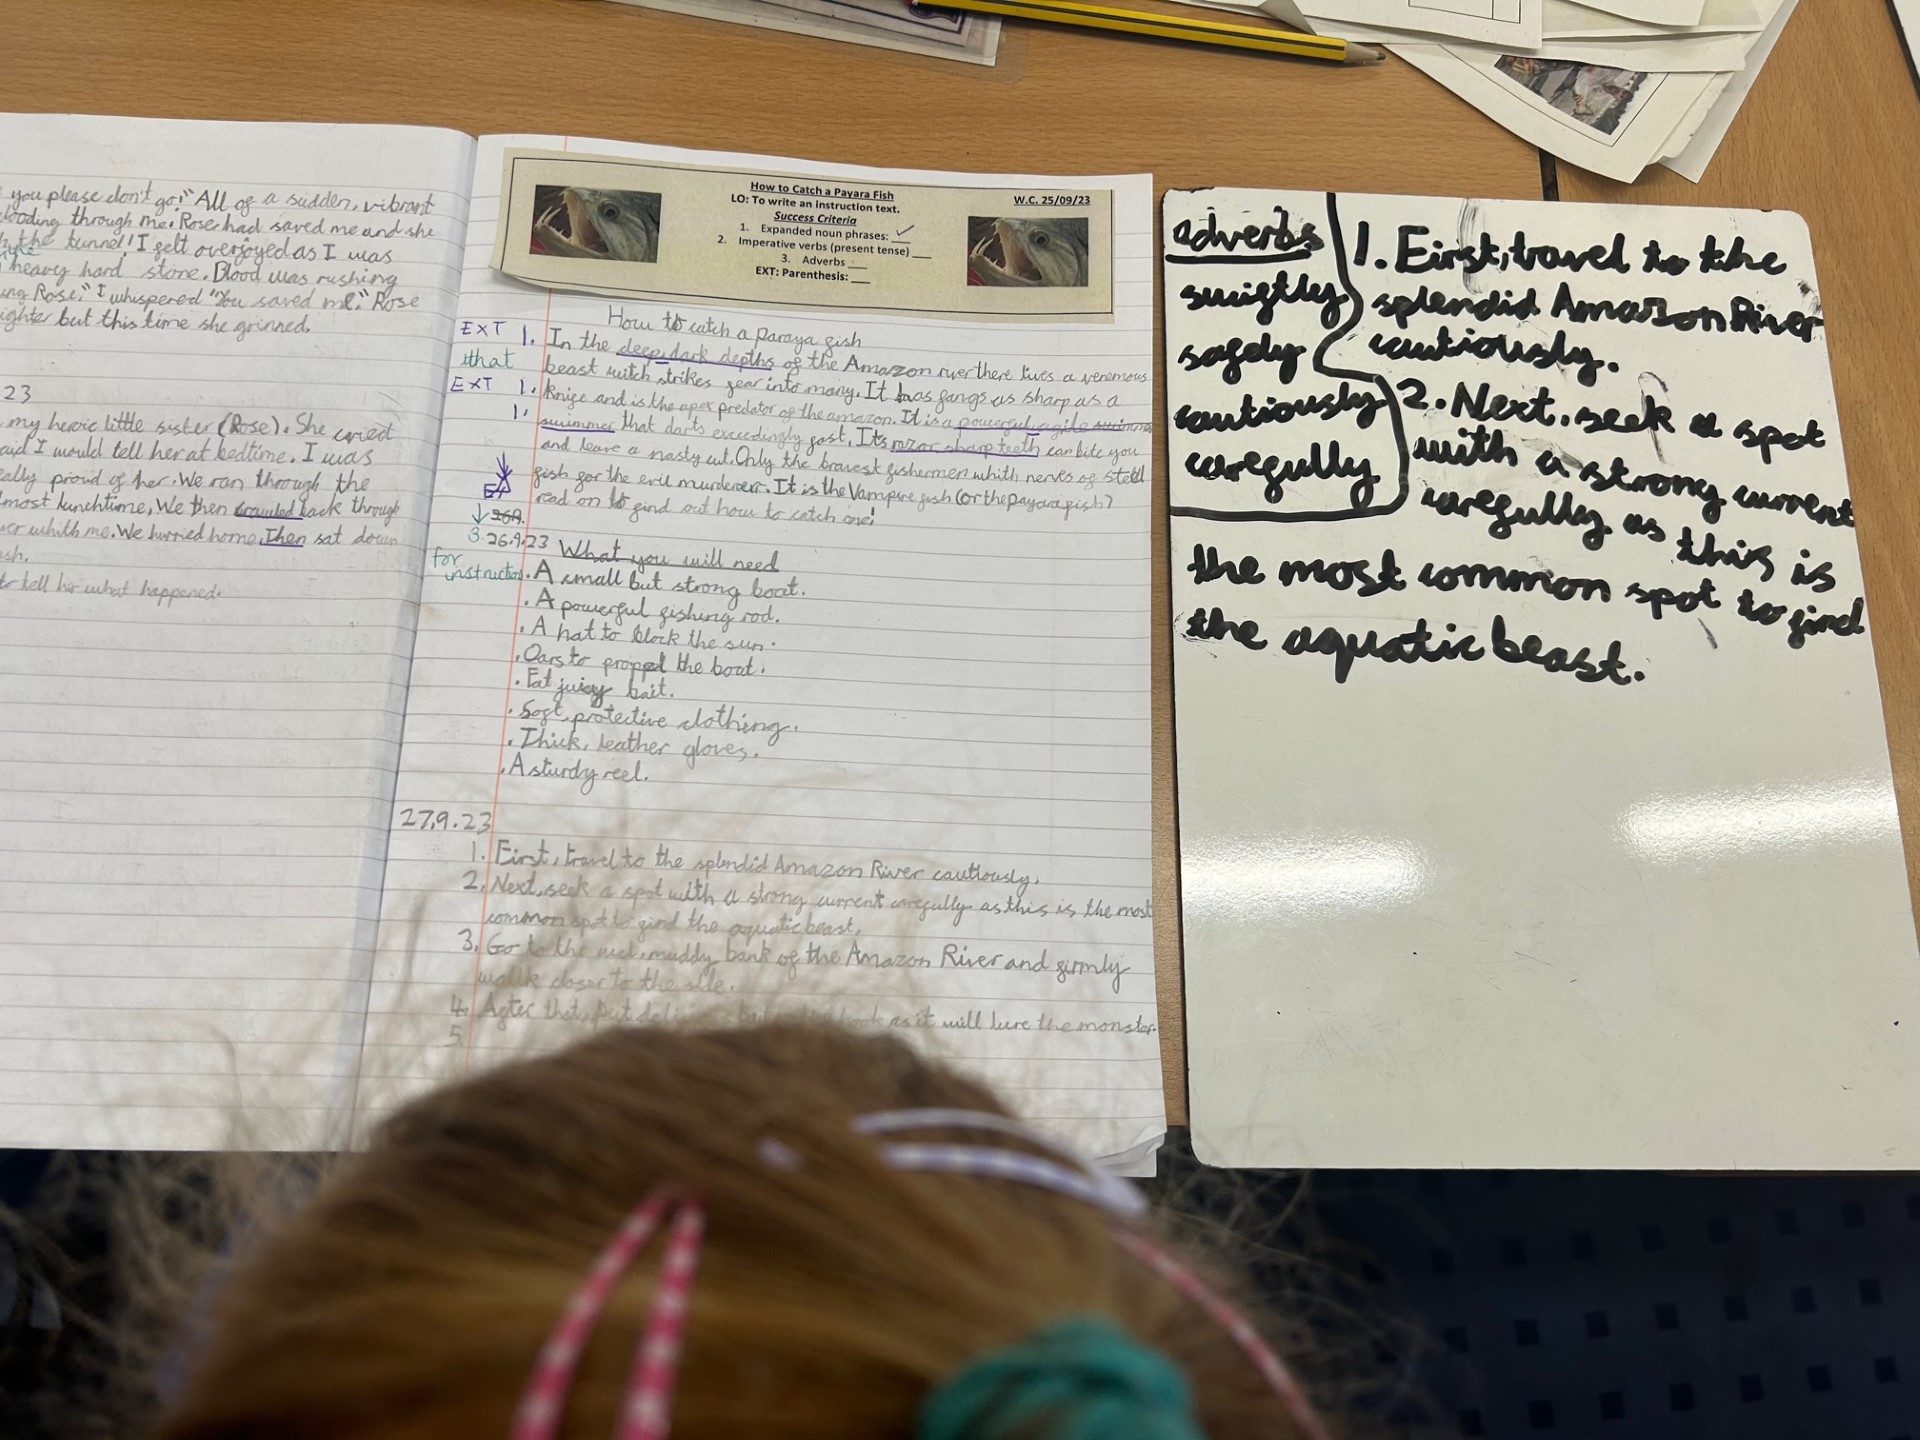 you please don't go!" All of a sudden, vibrant
flooding through me. Rose had saved me and she
the tunnel! I felt overjoyed as I was
heavy hard stone. Blood was rushing
Rose," I whispered "You saved me." Rose
but this time she grinned.
23
my heroic little sister (Rose). She cried
said I would tell her at bedtime. I was
really proud of her. We ran through the
almost lunchtime, We then crawled back through
whith me. We hurried home, Then sat down
to tell her what happened.
How to Catch a Payara Fish
W.C. 25/09/23
LO: To write an instruction text.
Success Criteria
1. Expanded noun phrases: ___
2. Imperative verbs (present tense) ___
3. Adverbs ___
EXT: Parenthesis: ___
How to catch a paraya fish
EXT 1. In the deep, dark depths of the Amazon river there lives a venemous
that beast witch strikes fear into many. It has fangs as sharp as a
EXT 1. knife and is the apex predator of the amazon. It is a powerful, agile swimm
1. swimmer that darts exceedingly fast. Its razor sharp teeth can bite you
and leave a nasty cut. Only the bravest fishermen whith nerves of steel
fish for the evil murderer. It is the Vampire fish (or the payara fish)
read on to find out how to catch one!
26.9.
3. 26.9.23 What you will need
for instruction . A small but strong boat.
. A powerful fishing rod.
. A hat to block the sun.
. Oars to proppel the boat.
. Fat juicy bait.
. Soft, protective clothing.
. Thick, leather gloves.
. A sturdy reel.
27.9.23
1. First, travel to the splendid Amazon River cautiously.
2. Next, seek a spot with a strong current carefully as this is the most
common spot to find the aquatic beast.
3. Go to the wet, muddy bank of the Amazon River and firmly
walk closer to the
4. After that, put bait hook as it will lure the monster.
5.
adverbs
swiftly
safely
cautiously
carefully
1. First, travel to the
splendid Amazon River
cautiously.
2. Next, seek a spot
with a strong current
carefully as this is
the most common spot to find
the aquatic beast.